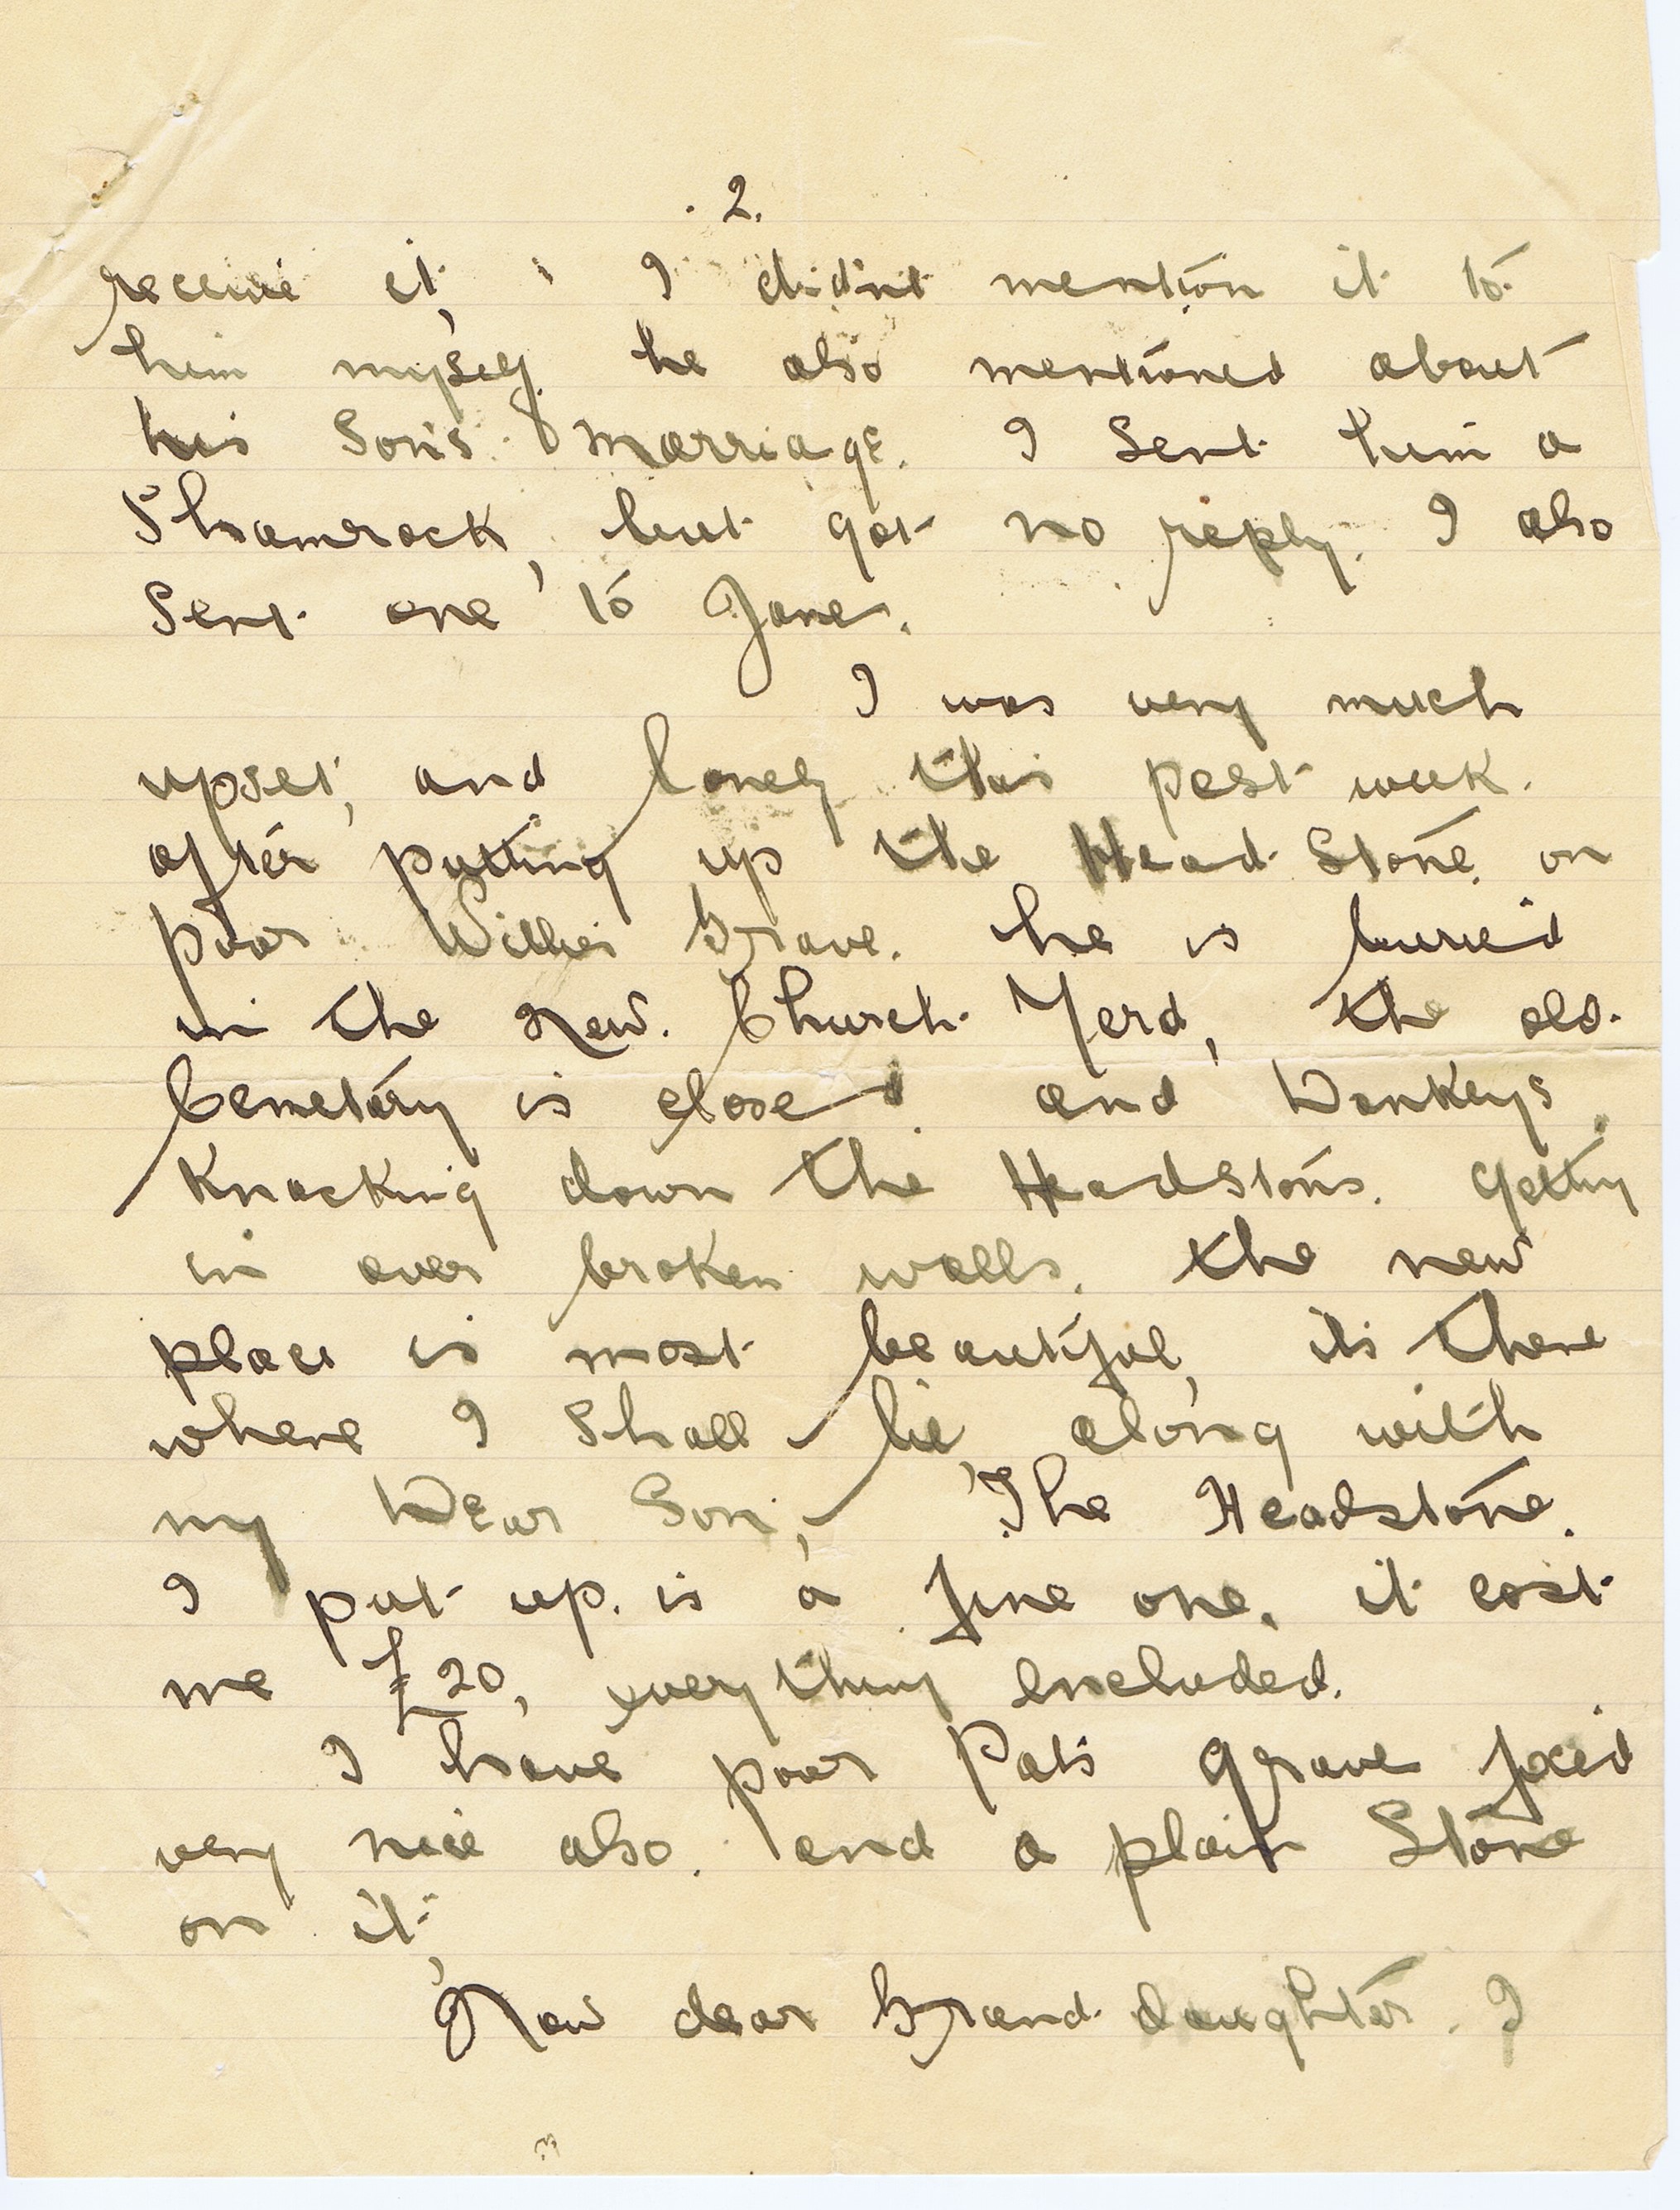 . 2.
receive it, I didnt mention it to
him myself he also mentioned about
his Sons marriage. I Sent him a
Shamrock, but got no reply. I also
Sent one to Jane.
I was very much
upset, and lonely this past week.
after putting up the Head Stone on
poor Willies Grave. he is buried
in the New. Church Yard, the old
Cemetery is closed and Donkeys
Knocking down the Headstons. getting
in over broken walls. the new
place is most beautiful, its there
where I Shall lie, along with
my Dear Son,- The Headstone.
I put up. is a fine one. it cost
me £20, everything encluded.
I have poor Pats grave fixed
very nice also. and a plain Stone
on it,
Now dear Grand daughter. I